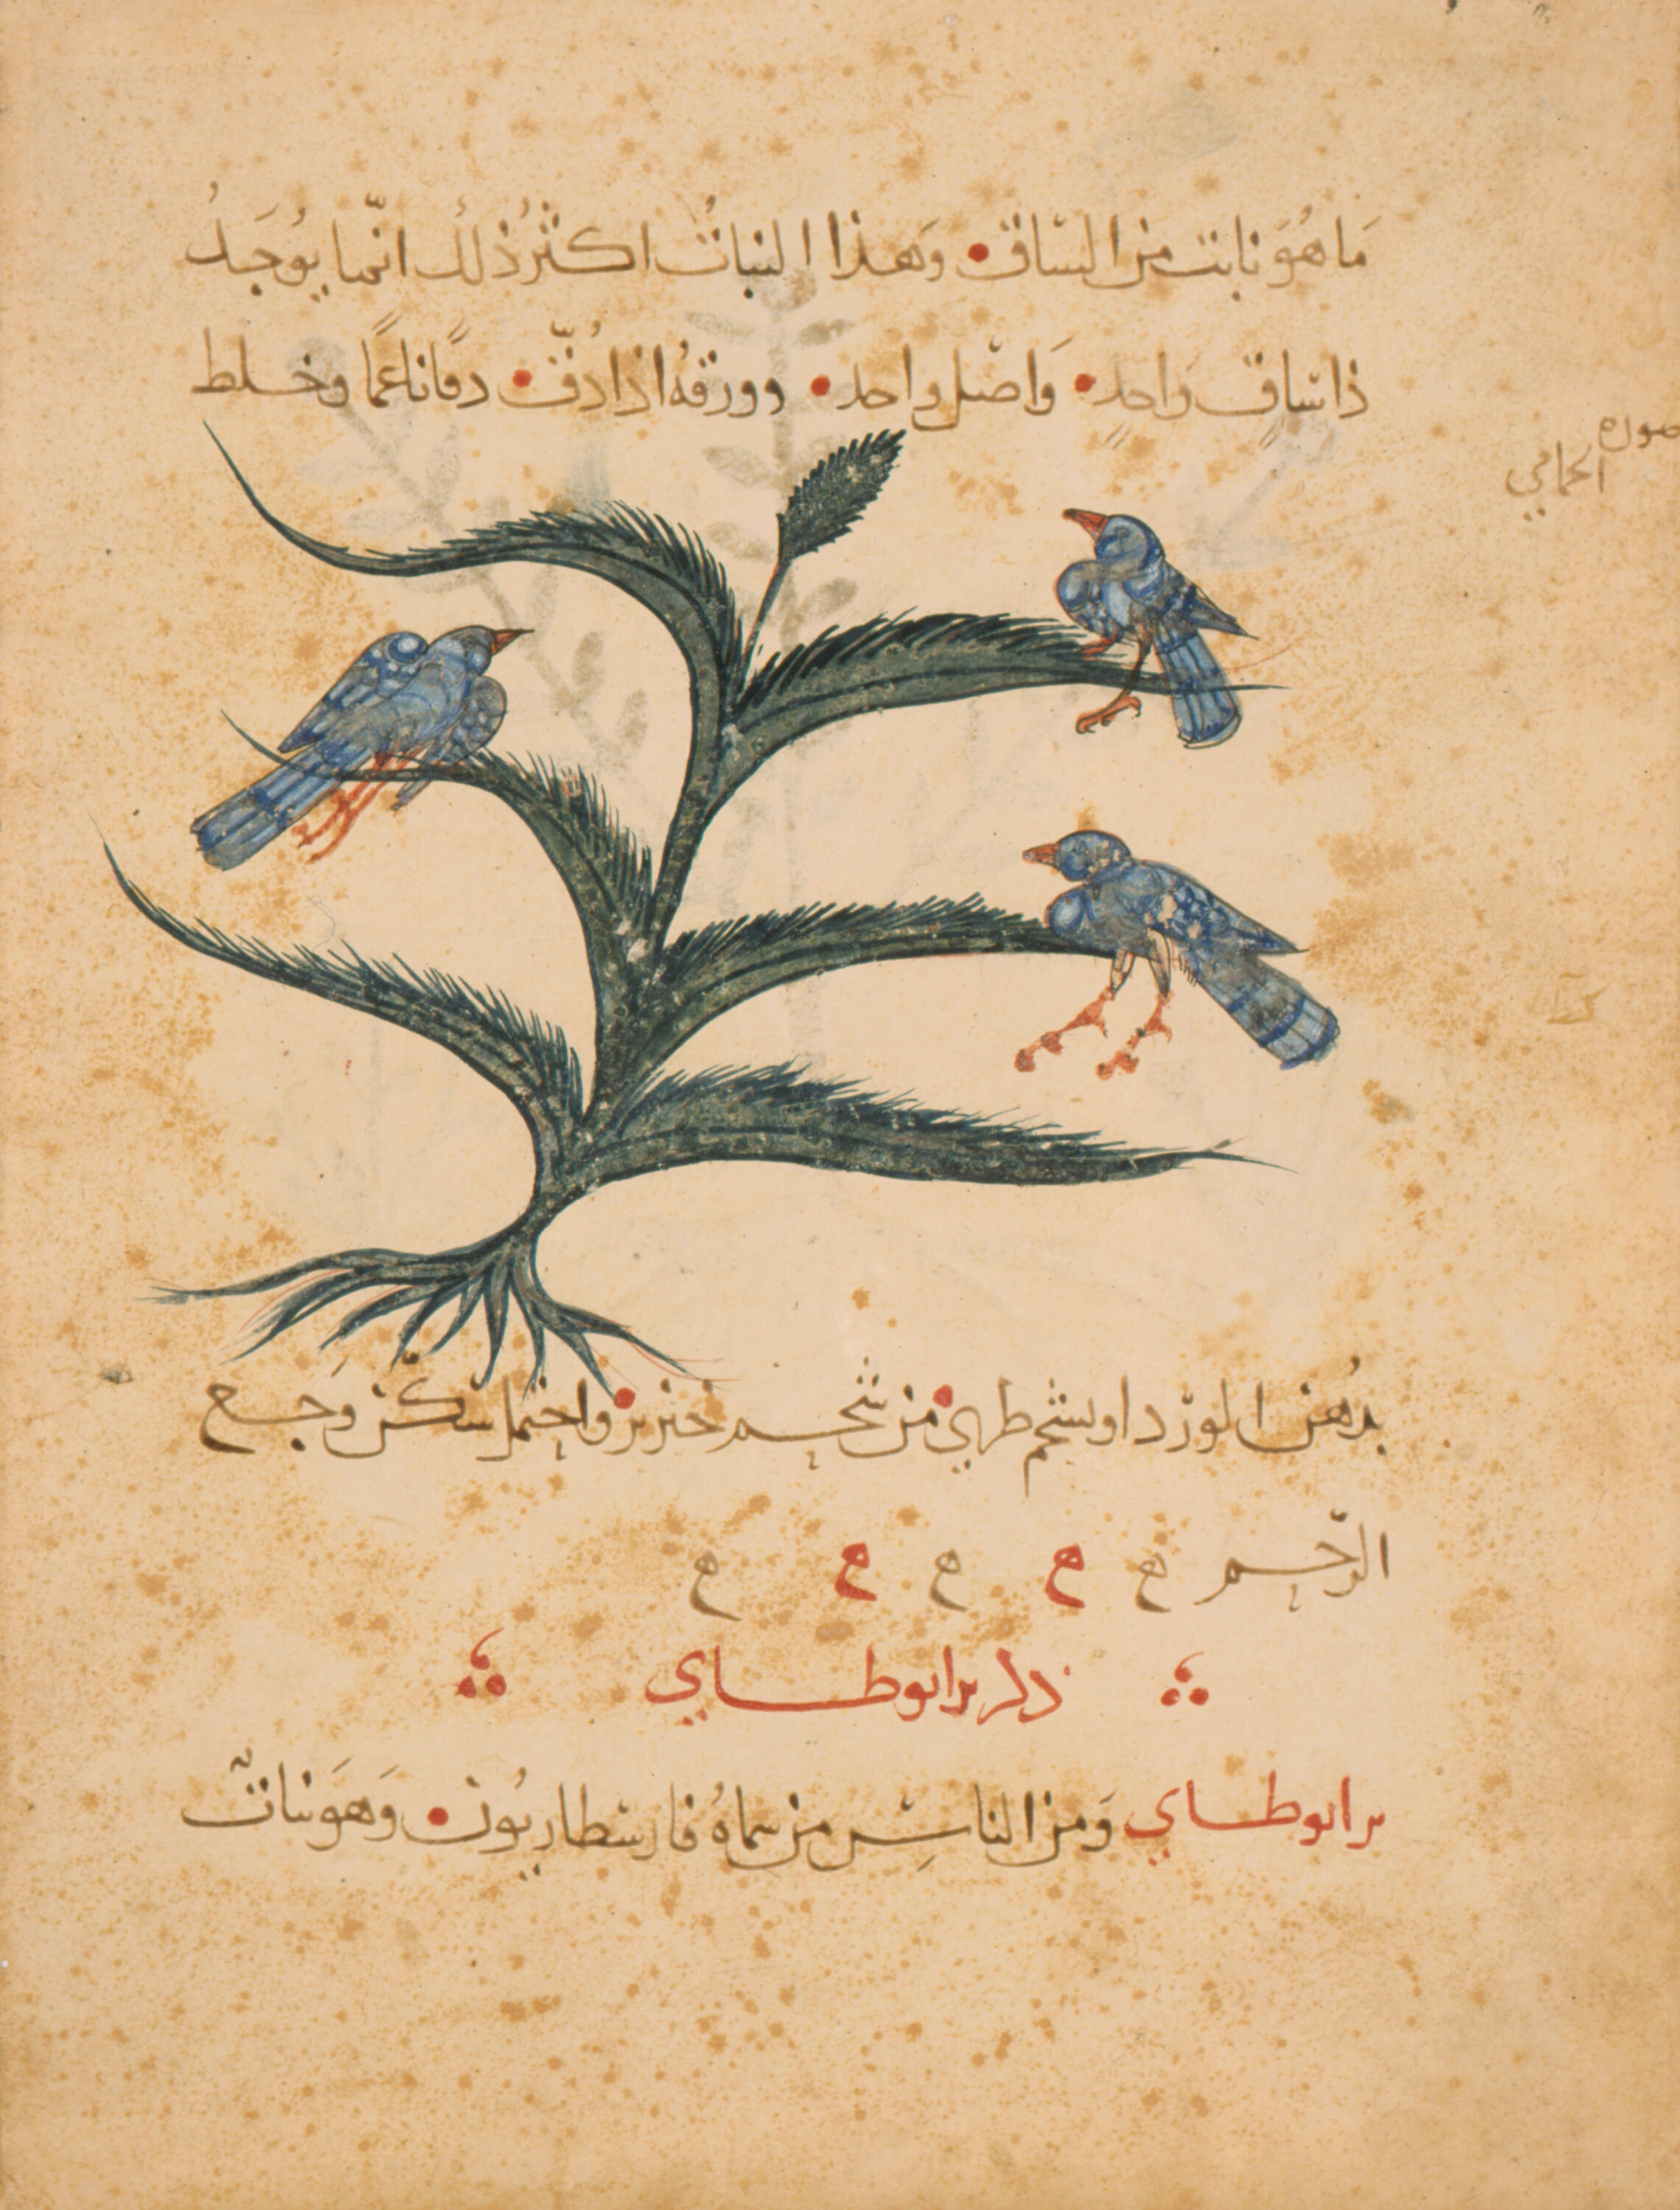 مَا هُوَ نابت من السّاق • وَهذا النباتُ اكثرُ ذلك انّما يُوجَدُ
ذا سَاقٍ وَاحدٍ • وَاصْل واحد • وورقهُ اذا دُقّ • دقًا ناعمًا وخلط
صورة
الحمامي
بدُهن الورْد او بشحم طري • من شحم خنزير • واحتمل سَكّن وَجع
الرّحم ح ح ح ح ح
ذكر برابوطاي
برابوطاي وَمن الناسِ من سماهُ فارسْطاريُون • وَهوَ نباتٌ